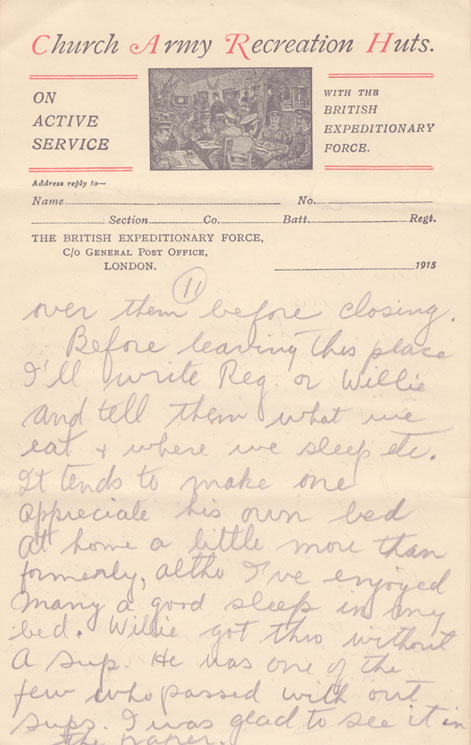 Church Army Recreation Huts.
ON
ACTIVE
SERVICE
WITH THE
BRITISH
EXPEDITIONARY
FORCE.
Address reply to—
Name No.
Section Co. Batt. Regt.
THE BRITISH EXPEDITIONARY FORCE,
C/o GENERAL POST OFFICE,
LONDON.
1915
11
over them before closing.
Before leaving this place
I'll write Reg. or Willie
and tell them what we
eat & where we sleep etc.
It tends to make one
appreciate his own bed
at home a little more than
formerly, altho I've enjoyed
many a good sleep in my
bed. Willie got thro without
a sup. He was one of the
few who passed with out
sups. I was glad to see it in
the paper.